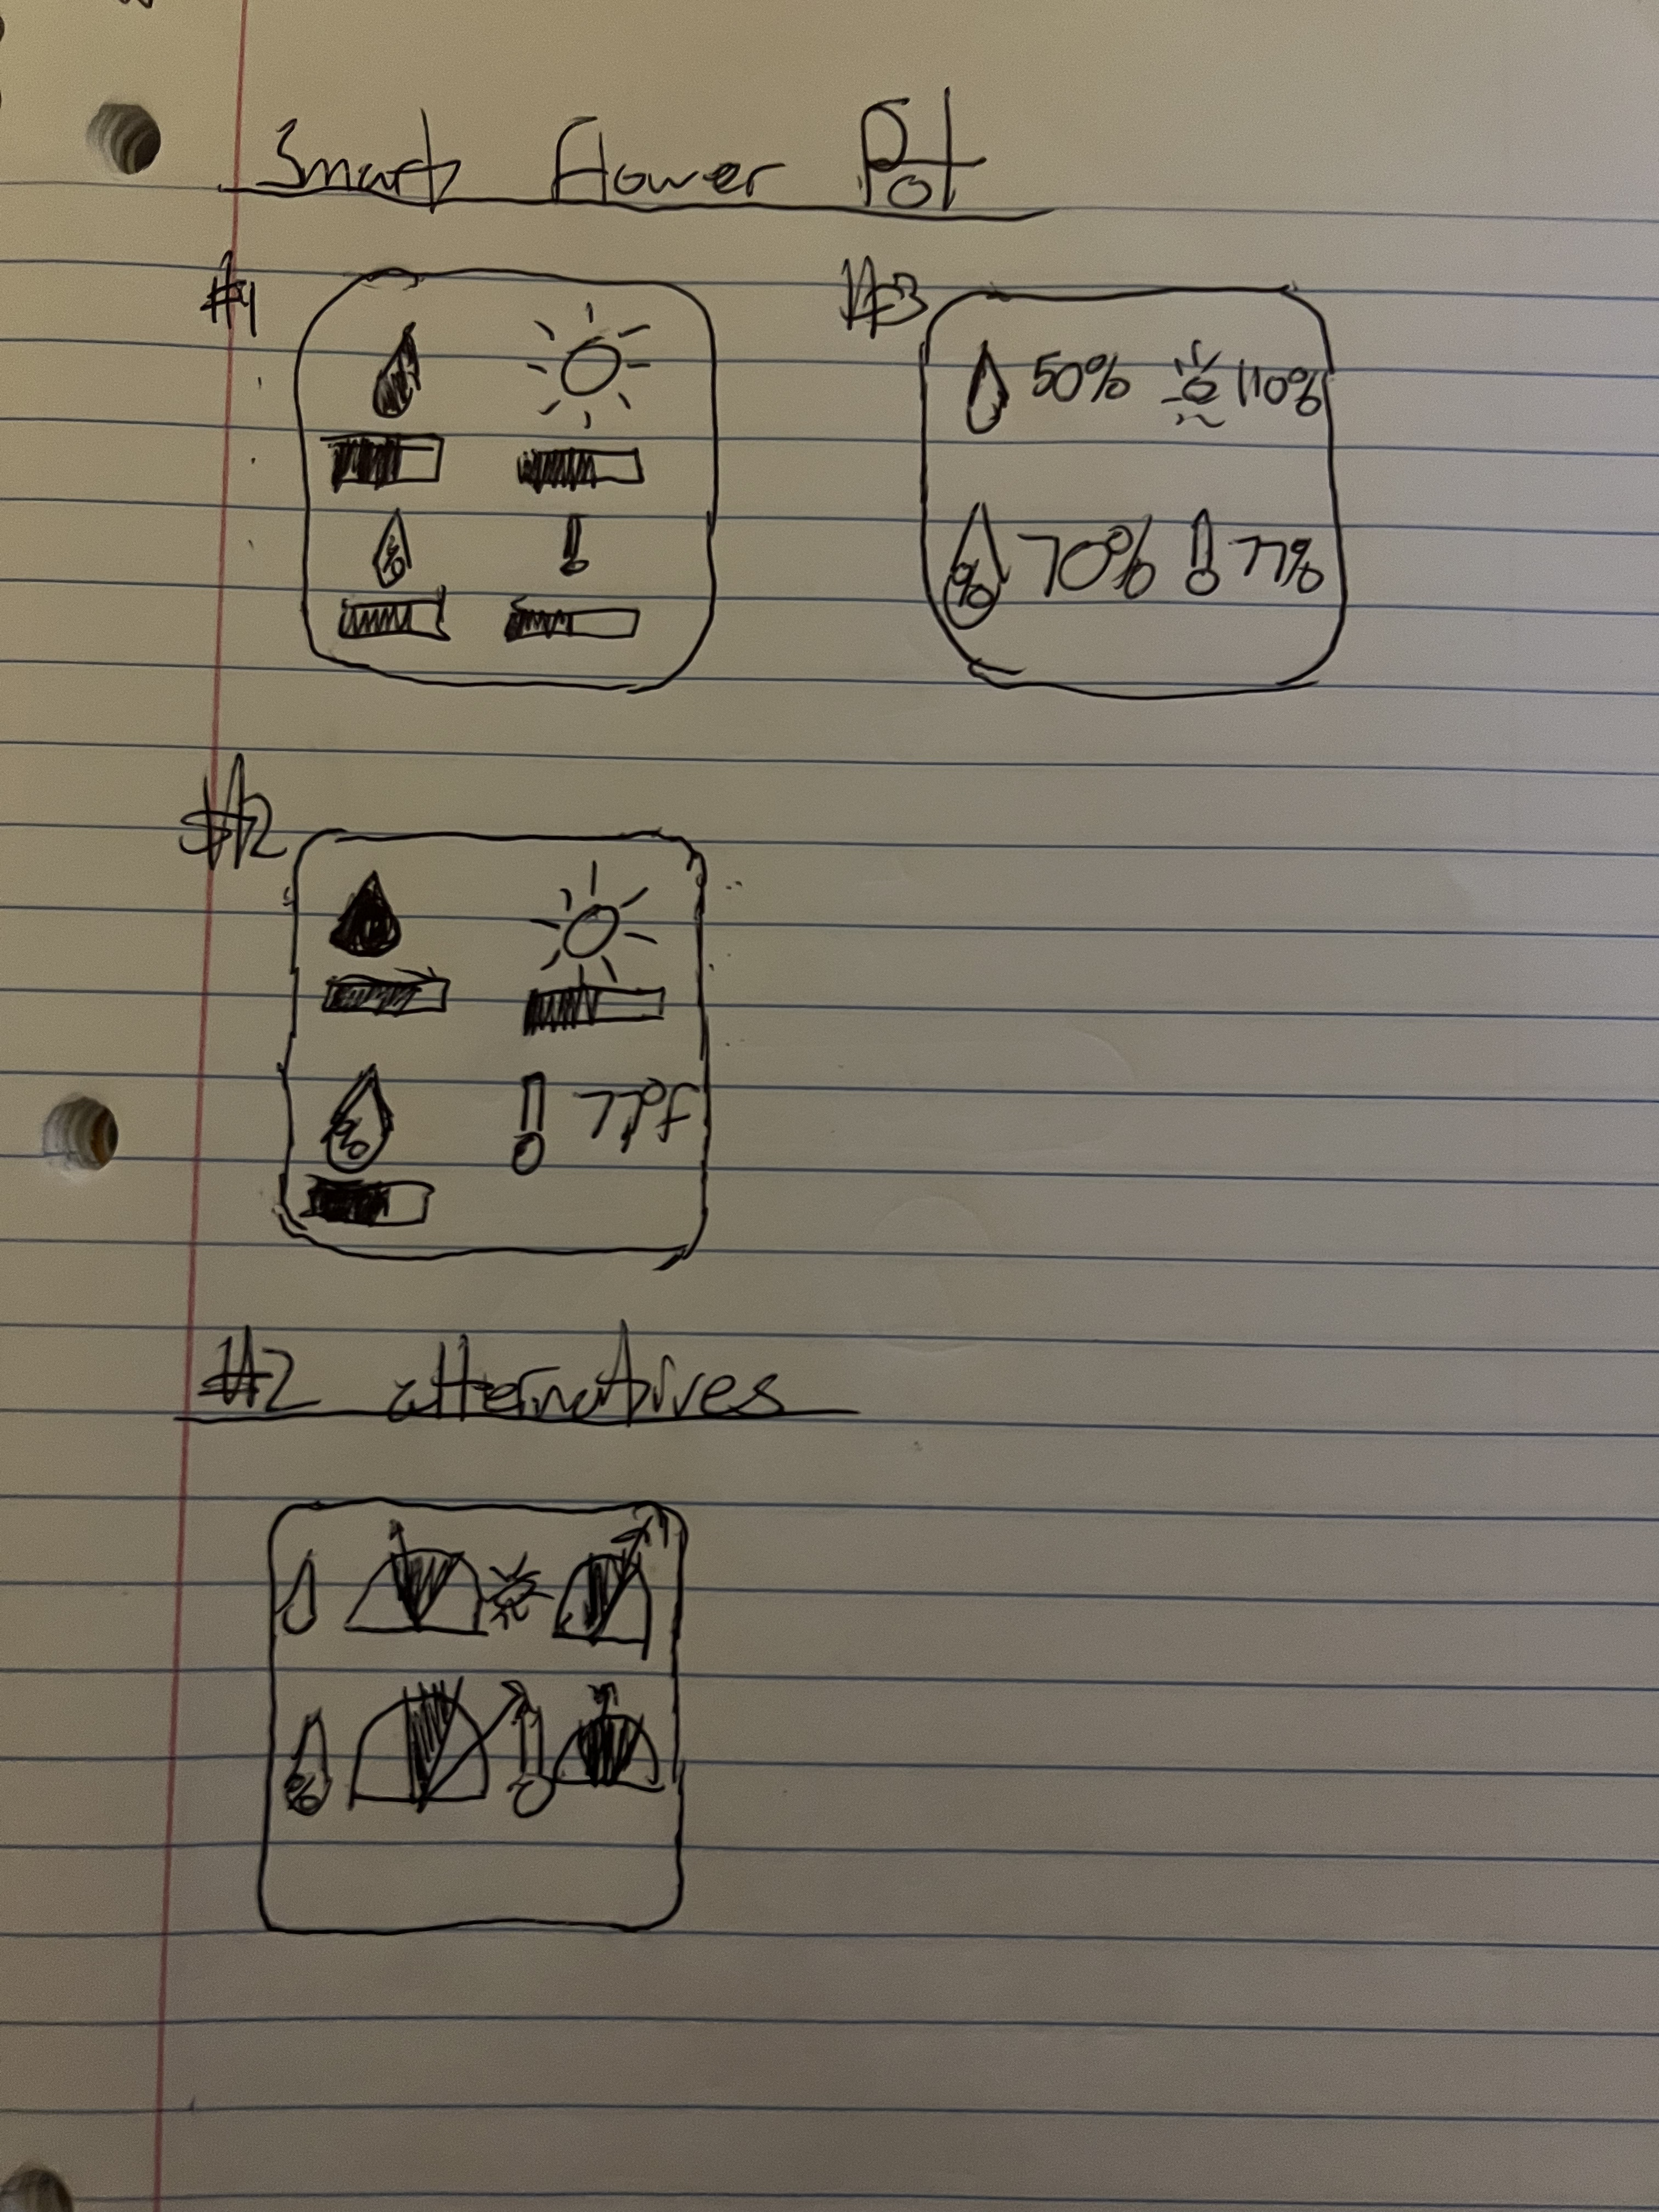 Smart Flower Pot
#1
#3
50% 110%
% 70% 77%
%
#2
% 77°F
#2 alternatives
%